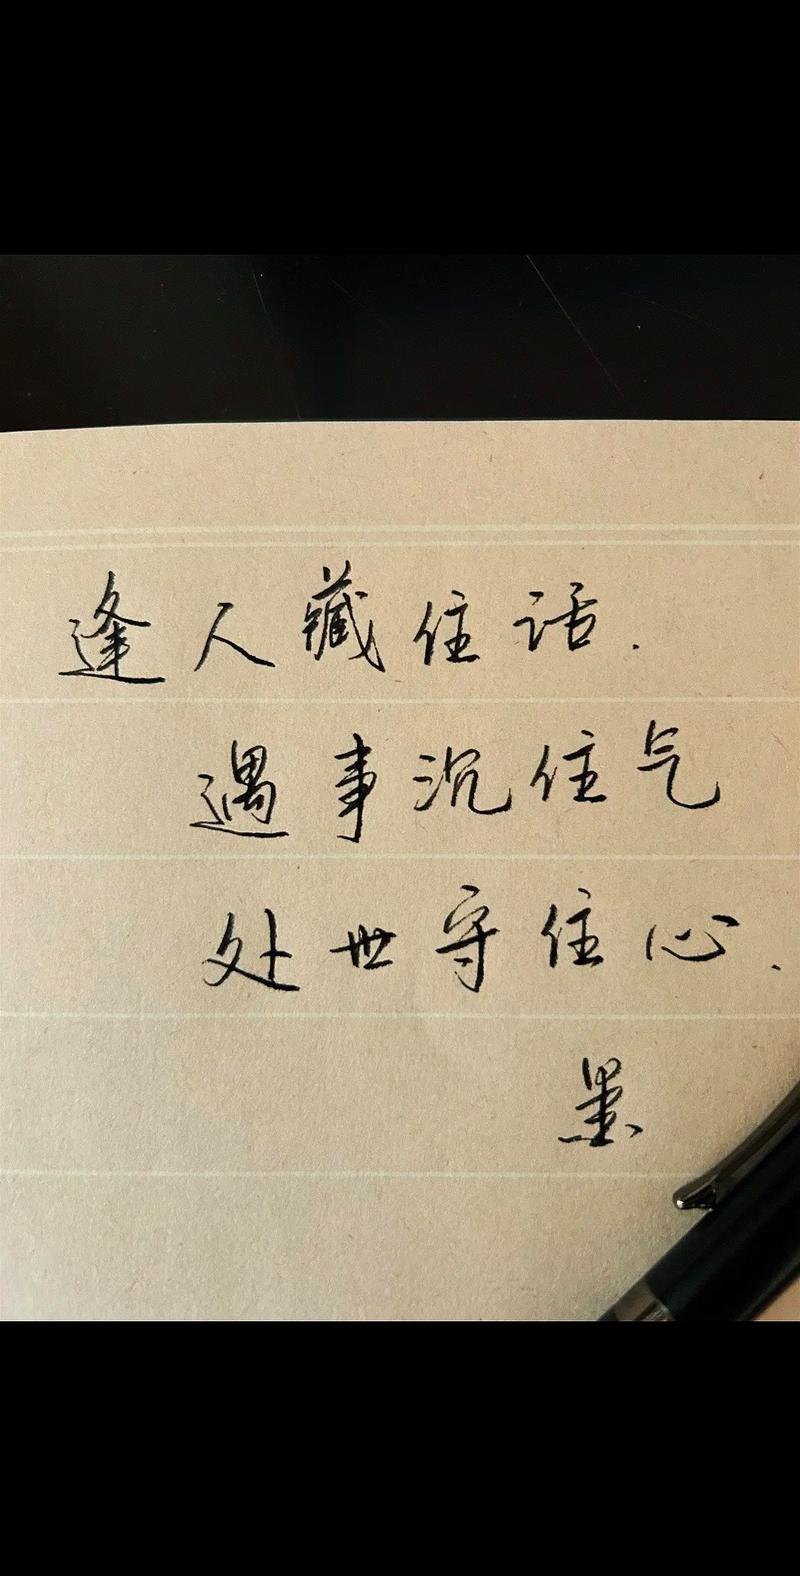 逢人藏住话.
遇事沉住气
处世守住心.
墨